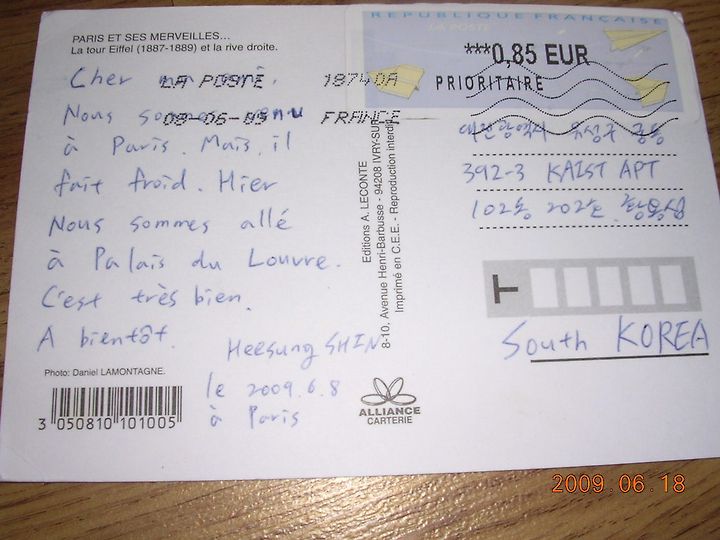 PARIS ET SES MERVEILLES...
La tour Eiffel (1887-1889) et la rive droite.
Cher
Nous sommes venu
à Paris. Mais, il
fait froid. Hier
Nous sommes allé
à Palais du Louvre.
C'est très bien.
A bientôt.
Heesung SHIN
le 2009.6.8
à Paris
Photo: Daniel LAMONTAGNE.
3 050810 101005
LA POSTE 18740A
FRANCE
Editions A. LECONTE
8-10, Avenue Henri-Barbusse - 94208 IVRY-SUR
Imprimé en C.E.E. - Reproduction interdit
ALLIANCE
CARTERIE
REPUBLIQUE FRANÇAISE
LA POSTE
***0,85 EUR
PRIORITAIRE
대전광역시 유성구 궁동
392-3 KAIST APT
102동 202호
South KOREA
2009.06.18